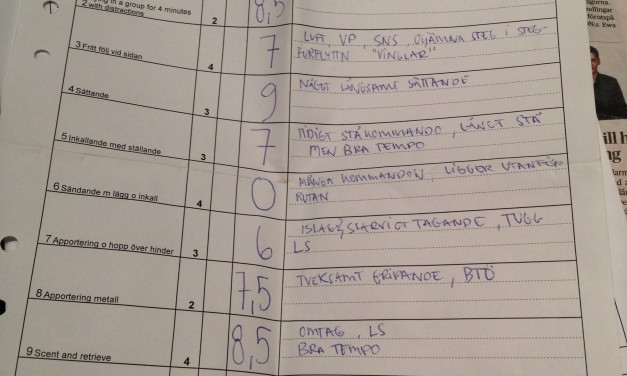 ying in a group for 4 minutes
2 with distractions 2 8,5
3 Fritt följ vid sidan 4 7 LUFT, VP, SNS, OJÄMNA STEG I STEG-
FÖRFLYTTN "VINGLAR"
4 Sättande 3 9 NÅGOT LÅNGSAMT SÄTTANDE
5 Inkallande med ställande 3 7 TIDIGT STÅKOMMANDO, LÅNGT STÅ
MEN BRA TEMPO
6 Sändande m lägg o inkall 4 0 MÅNGA KOMMANDON, LIGGER UTANFÖR
RUTAN
7 Apportering o hopp över hinder 3 6 SLARVIGT TAGANDE, TUGG
LS
8 Apportering metall 2 7,5 TVEKSAMT GRIPANDE, BTÖ
9 Scent and retrieve 4 8,5 OMTAG, LS
BRA TEMPO